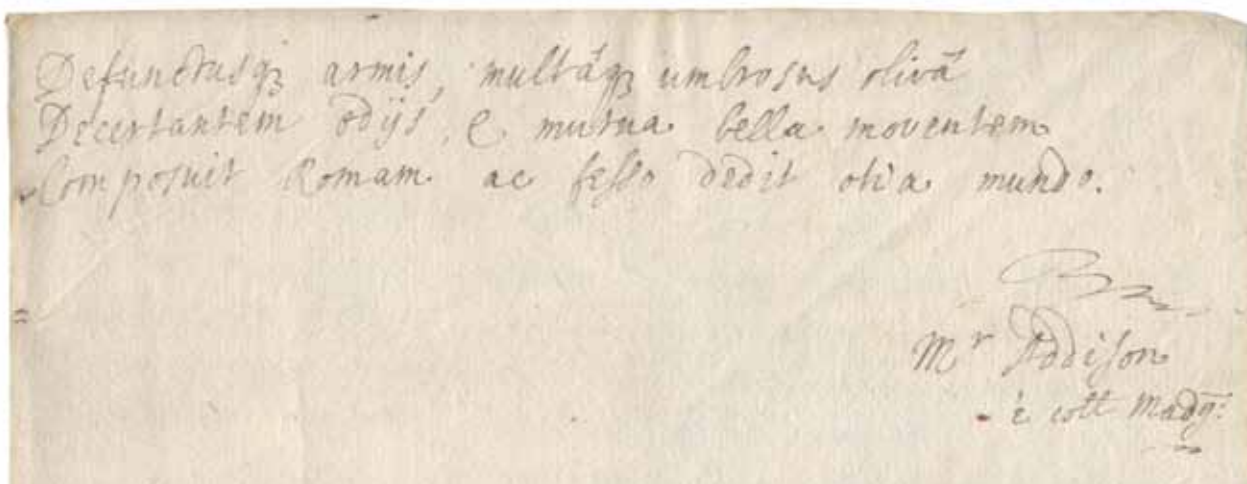 Defunctusq; armis, multâq; umbrosus olivâ
Decertantem odijs, & mutua bella moventem
Composuit Romam ac fesso dedit otia mundo.
Mr Addison
è coll Madg: